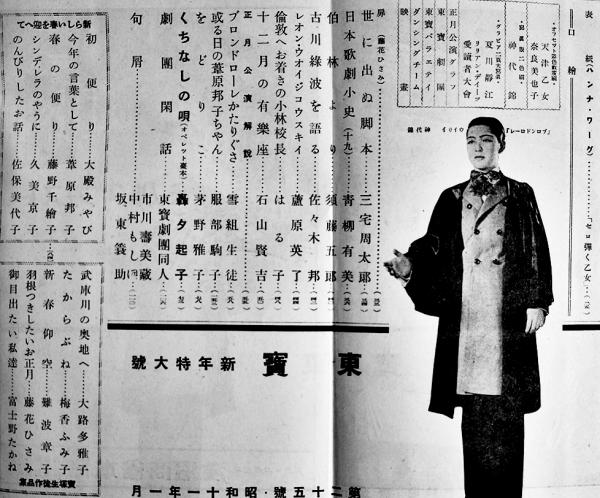 表紙(ハンナ・ワーグ)…………「セロ弾く乙女」
口繪
・オフセツト彩色版原圖・
天津乙女
奈良美也子
・寫眞版二色刷・
神代錦
・グラビア版二頁大寫眞・
リリアン・ギーブ
夏川靜江
愛讀者大會
正月公演グラフ
東寶劇團
東寶バラエティ
ダンシングチーム
映畫
神代錦 イロイロ 「ブロンドローレ」
扉(藤花ひさみ)
世に出ぬ脚本……三宅周太郎
日本歌劇小史(十九)……青柳有美
伯林より……須藤五郎
古川綠波を語る……佐々木邦
レオン・ウオイジコウスキイ……蘆原英了
倫敦へお着きの小林校長……はる子
十二月の有樂座……石山賢吉
正月公演解説
ブロンドローレかたりぐさ……雪組生徒
或る日の葦原邦子ちやん……服部駒子
をどりこ……茅野雅子
くちなしの唄(オペレット臺本)……轟夕起子
劇團閑話……東寶劇團同人
句屑……市川壽美藏
中村もしほ
坂東簑助
新らしい春を迎へて
初便り……大殿みやび
今年の言葉として……葦原邦子
春の便り……藤野千繪子
シンデレラのやうに……久美京子
のんびりしたお話……佐保美代子
武庫川の奥地へ……大路多雅子
たからぶね……梅香ふみ子
新春仰空……難波章子
羽根つきしたいお正月……藤花ひさみ
御目出たい私達……富士野たかね
寶塚生徒作品集
東寶 新年特大號
第二十五號・昭和十一年一月